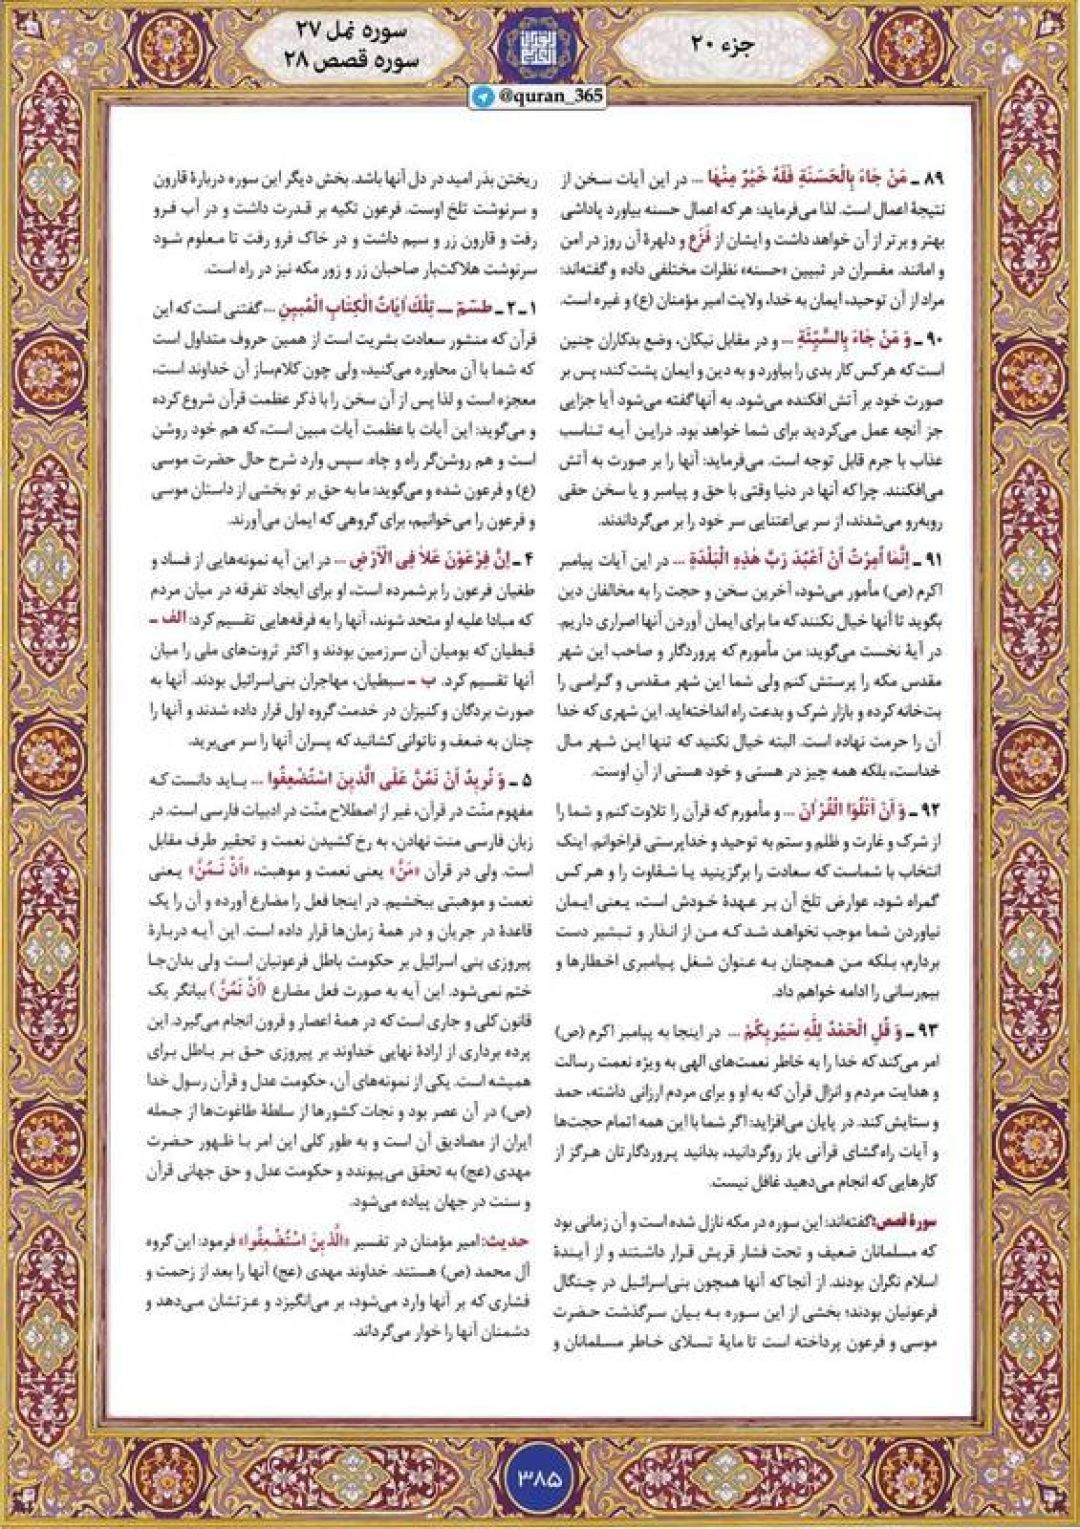 جزء ۲۰
سوره نمل ۲۷
سوره قصص ۲۸
@quran_365
۸۹ ـ مَنْ جَاءَ بِالْحَسَنَةِ فَلَهُ خَيْرٌ مِنْهَا ... در این آیات سخن از
نتیجهٔ اعمال است. لذا می‌فرماید: هر که اعمال حسنه بیاورد پاداشی
بهتر و برتر از آن خواهد داشت و ایشان از فَزَع و دلهرهٔ آن روز در امن
و امانند. مفسران در تبیین «حسنه» نظرات مختلفی داده و گفته‌اند:
مراد از آن توحید، ایمان به خدا، ولایت امیر مؤمنان (ع) و غیره است.
۹۰ ـ وَ مَنْ جَاءَ بِالسَّيِّئَةِ ... و در مقابل نیکان، وضع بدکاران چنین
است که هر کس کار بدی را بیاورد و به دین و ایمان پشت کند، پس بر
صورت خود بر آتش افکنده می‌شود. به آنها گفته می‌شود آیا جزایی
جز آنچه عمل می‌کردید برای شما خواهد بود. دراین آیه تناسب
عذاب با جرم قابل توجه است. می‌فرماید: آنها را بر صورت به آتش
می‌افکنند. چرا که آنها در دنیا وقتی با حق و پیامبر و یا سخن حقی
روبه‌رو می‌شدند، از سر بی‌اعتنایی سر خود را بر می‌گرداندند.
۹۱ ـ إِنَّمَا أُمِرْتُ أَنْ أَعْبُدَ رَبَّ هَذِهِ الْبَلْدَةِ ... در این آیات پیامبر
اکرم (ص) مأمور می‌شود، آخرین سخن و حجت را به مخالفان دین
بگوید تا آنها خیال نکنند که ما برای ایمان آوردن آنها اصراری داریم.
در آیهٔ نخست می‌گوید: من مأمورم که پروردگار و صاحب این شهر
مقدس مکه را پرستش کنم ولی شما این شهر مقدس و گرامی را
بت‌خانه کرده و بازار شرک و بدعت راه انداخته‌اید. این شهری که خدا
آن را حرمت نهاده است. البته خیال نکنید که تنها این شهر مال
خداست، بلکه همه چیز در هستی و خود هستی از آنِ اوست.
۹۲ ـ وَ أَنْ أَتْلُوَا الْقُرْآنَ ... و مأمورم که قرآن را تلاوت کنم و شما را
از شرک و غارت و ظلم و ستم به توحید و خداپرستی فراخوانم. اینک
انتخاب با شماست که سعادت را برگزینید یا شقاوت را و هر کس
گمراه شود، عوارض تلخ آن بر عهدهٔ خودش است، یعنی ایمان
نیاوردن شما موجب نخواهد شد که من از انذار و تبشیر دست
بردارم، بلکه من همچنان به عنوان شغل پیامبری اخطارها و
بیم‌رسانی را ادامه خواهم داد.
۹۳ ـ وَ قُلِ الْحَمْدُ لِلَّهِ سَيُرِيكُمْ ... در اینجا به پیامبر اکرم (ص)
امر می‌کند که خدا را به خاطر نعمت‌های الهی به ویژه نعمت رسالت
و هدایت مردم و انزال قرآن که به او و برای مردم ارزانی داشته، حمد
و ستایش کند. در پایان می‌افزاید: اگر شما با این همه اتمام حجت‌ها
و آیات راه‌گشای قرآنی باز روگردانید، بدانید پروردگارتان هرگز از
کارهایی که انجام می‌دهید غافل نیست.
سورهٔ قصص: گفته‌اند: این سوره در مکه نازل شده است و آن زمانی بود
که مسلمانان ضعیف و تحت فشار قریش قرار داشتند و از آیندهٔ
اسلام نگران بودند. از آنجا که آنها همچون بنی‌اسرائیل در چنگال
فرعونیان بودند؛ بخشی از این سوره به بیان سرگذشت حضرت
موسی و فرعون پرداخته است تا مایهٔ تسلای خاطر مسلمانان و
ریختن بذر امید در دل آنها باشد. بخش دیگر این سوره دربارهٔ قارون
و سرنوشت تلخ اوست. فرعون تکیه بر قدرت داشت و در آب فرو
رفت و قارون زر و سیم داشت و در خاک فرو رفت تا معلوم شود
سرنوشت هلاکت‌بار صاحبان زر و زور مکه نیز در راه است.
۱ـ۲ ـ طسم ـ تِلْكَ آيَاتُ الْكِتَابِ الْمُبِينِ ... گفتنی است که این
قرآن که منشور سعادت بشریت است از همین حروف متداول است
که شما با آن محاوره می‌کنید، ولی چون کلام‌ساز آن خداوند است،
معجزه است و لذا پس از آن سخن را با ذکر عظمت قرآن شروع کرده
و می‌گوید: این آیات با عظمت آیات مبین است، که هم خود روشن
است و هم روشن‌گر راه و چاه. سپس وارد شرح حال حضرت موسی
(ع) و فرعون شده و می‌گوید: ما به حق بر تو بخشی از داستان موسی
و فرعون را می‌خوانیم، برای گروهی که ایمان می‌آورند.
۴ ـ إِنَّ فِرْعَوْنَ عَلَا فِي الْأَرْضِ ... در این آیه نمونه‌هایی از فساد و
طغیان فرعون را برشمرده است، او برای ایجاد تفرقه در میان مردم
که مبادا علیه او متحد شوند، آنها را به فرقه‌هایی تقسیم کرد: الف ـ
قبطیان که بومیان آن سرزمین بودند و اکثر ثروت‌های ملی را میان
آنها تقسیم کرد. ب ـ سبطیان، مهاجران بنی‌اسرائیل بودند. آنها به
صورت بردگان و کنیزان در خدمت گروه اول قرار داده شدند و آنها را
چنان به ضعف و ناتوانی کشانید که پسران آنها را سر می‌برید.
۵ ـ وَ نُرِيدُ أَنْ نَمُنَّ عَلَى الَّذِينَ اسْتُضْعِفُوا ... باید دانست که
مفهوم منّت در قرآن، غیر از اصطلاح منّت در ادبیات فارسی است. در
زبان فارسی منت نهادن، به رخ کشیدن نعمت و تحقیر طرف مقابل
است. ولی در قرآن «مَنَّ» یعنی نعمت و موهبت، «أَنْ نَمُنَّ» یعنی
نعمت و موهبتی ببخشیم. در اینجا فعل را مضارع آورده و آن را یک
قاعدهٔ در جریان و در همهٔ زمان‌ها قرار داده است. این آیه دربارهٔ
پیروزی بنی اسرائیل بر حکومت باطل فرعونیان است ولی بدان‌جا
ختم نمی‌شود. این آیه به صورت فعل مضارع (أَنْ نَمُنَّ) بیانگر یک
قانون کلی و جاری است که در همهٔ اعصار و قرون انجام می‌گیرد. این
پرده برداری از ارادهٔ نهایی خداوند بر پیروزی حق بر باطل برای
همیشه است. یکی از نمونه‌های آن، حکومت عدل و قرآن رسول خدا
(ص) در آن عصر بود و نجات کشورها از سلطهٔ طاغوت‌ها از جمله
ایران از مصادیق آن است و به طور کلی این امر با ظهور حضرت
مهدی (عج) به تحقق می‌پیوندد و حکومت عدل و حق جهانی قرآن
و سنت در جهان پیاده می‌شود.
حدیث: امیر مؤمنان در تفسیر «الَّذِينَ اسْتُضْعِفُوا» فرمود: این گروه
آل محمد (ص) هستند. خداوند مهدی (عج) آنها را بعد از زحمت و
فشاری که بر آنها وارد می‌شود، بر می‌انگیزد و عزتشان می‌دهد و
دشمنان آنها را خوار می‌گرداند.
۳۸۵